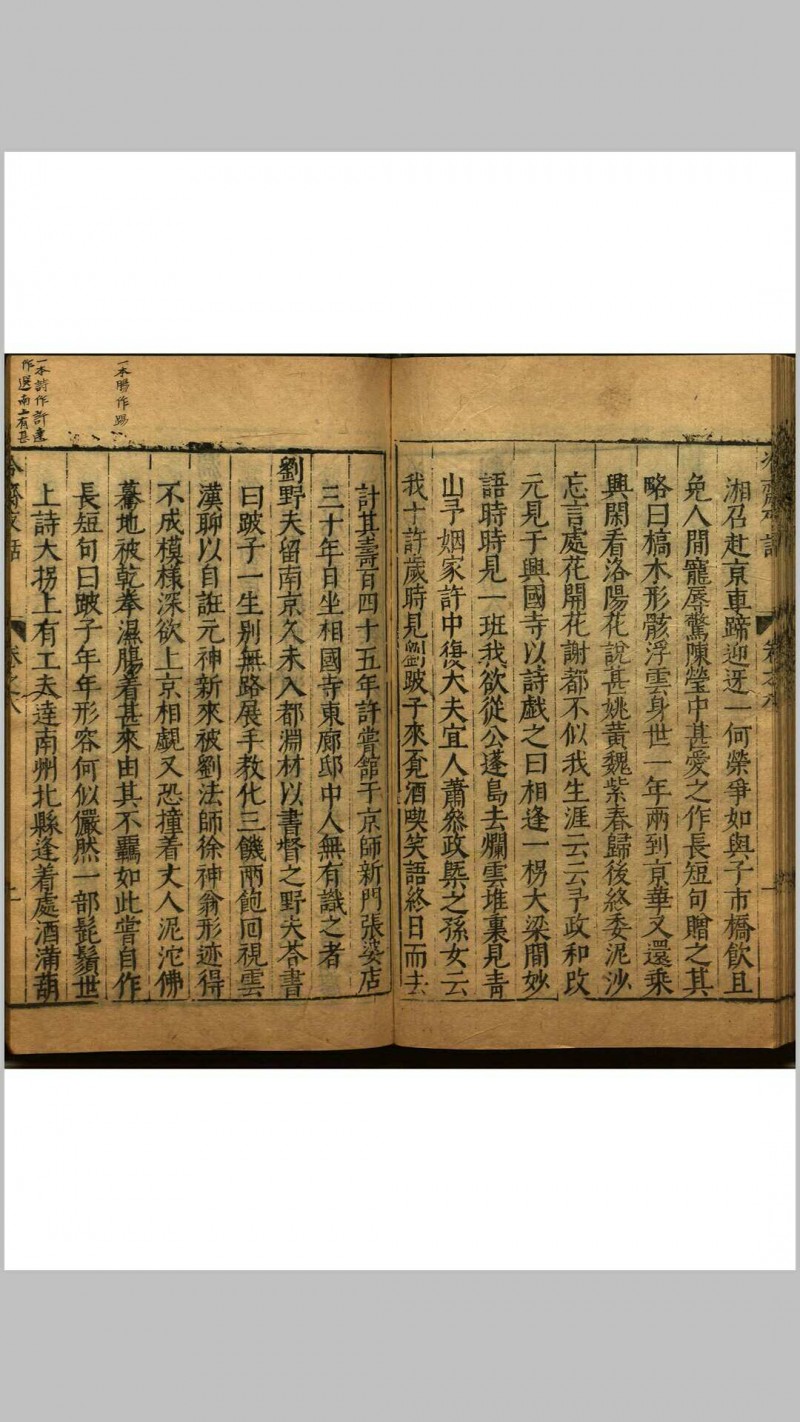 湘召赴京車蹄迎迓一何榮爭如與子市橋飲且
免人間寵辱驚陳瑩中甚愛之作長短句贈之其
略曰槁木形骸浮雲身世一年兩到京華又還乘
興閑看洛陽花說甚姚黃魏紫春歸後終委泥沙
忘言處花開花謝都不似我生涯云云予政和改
元見于興國寺以詩戲之曰相逢一柺大梁間妙
語時時見一班我欲從公蓬島去爛雲堆裏見青
山予姻家許中復大夫宜人蕭叅政㮣之孫女云
我十許歲時見劉跛子來覔酒喫笑語終日而去
計其壽百四十五年許嘗舘于京師新門張婆店
三十年日坐相國寺東廊邸中人無有識之者
劉野夫留南京久未入都淵材以書督之野夫荅書
曰跛子一生别無路展手教化三饑兩飽回視雲
漢聊以自誑元神新來被劉法師徐神翁形迹得
不成模樣深欲上京相覷又恐撞着丈人泥沱佛
驀地被乾拳濕腸着甚來由其不羈如此嘗自作
長短句曰跛子年年形容何似儼然一部髭鬚世
上詩大拐上有工夫達南州北縣逢着處酒滿葫
一本腸作踢
一本詩作許達
作選南上有甚
冷齋夜話
卷之八